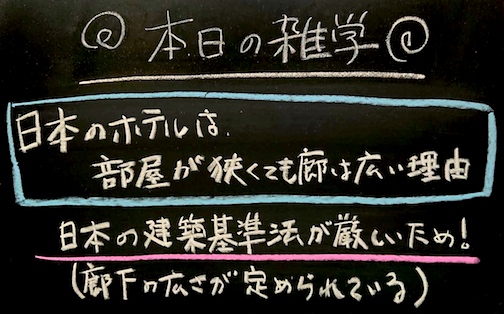 本日の雑学
日本のホテルは、
部屋が狭くても廊は広い理由
日本の建築基準法が厳しいため!
(廊下の広さが定められている)